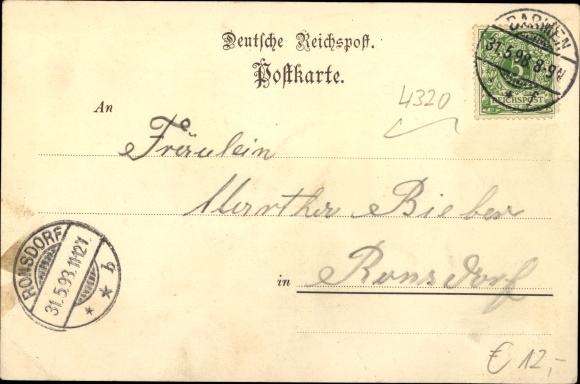 Deutsche Reichspost.
Postkarte.
BARMEN
31.5.98.8-9V
REICHSPOST
4320
An
Fräulein
Martha Bieber
in Ronsdorf
RONSDORF
31.5.98.11-12V
* * b
€ 12,-